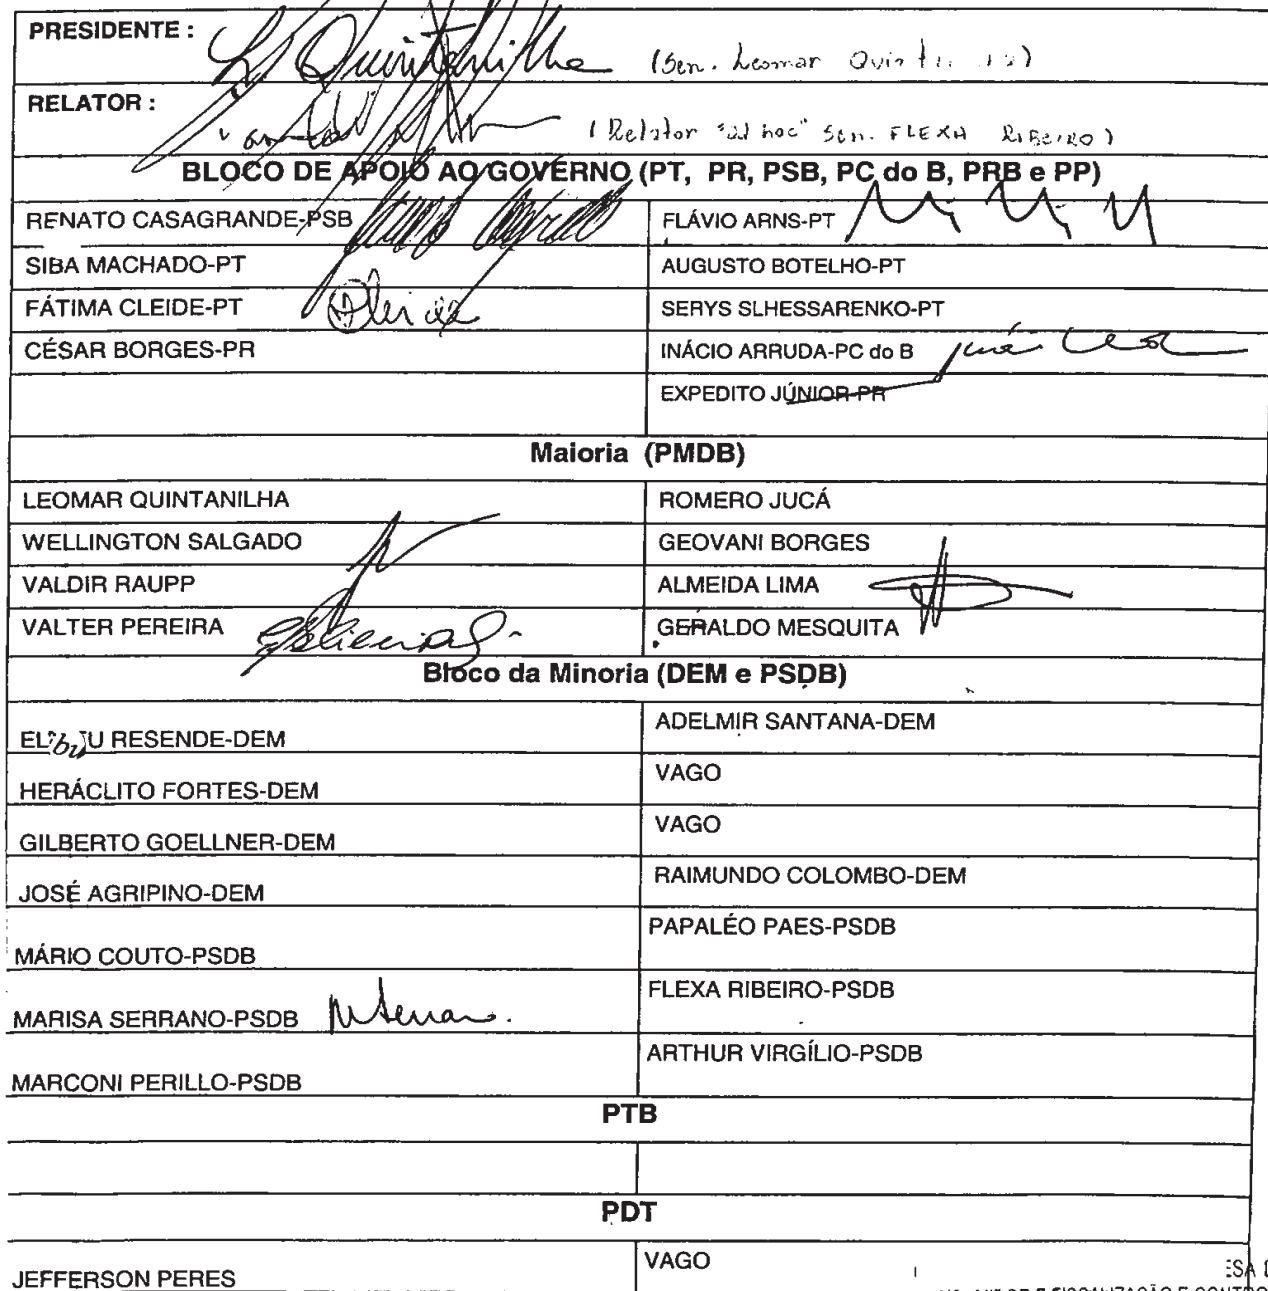 PRESIDENTE :
L. Quintanilha (Sen. Leomar
RELATOR :
(Relator "ad hoc" Sen. FLEXA RIBEIRO)
BLOCO DE APOIO AO GOVERNO (PT, PR, PSB, PC do B, PRB e PP)
RENATO CASAGRANDE-PSB
FLÁVIO ARNS-PT
SIBA MACHADO-PT
AUGUSTO BOTELHO-PT
FÁTIMA CLEIDE-PT
SERYS SLHESSARENKO-PT
CÉSAR BORGES-PR
INÁCIO ARRUDA-PC do B
EXPEDITO JÚNIOR-PR
Maioria (PMDB)
LEOMAR QUINTANILHA
ROMERO JUCÁ
WELLINGTON SALGADO
GEOVANI BORGES
VALDIR RAUPP
ALMEIDA LIMA
VALTER PEREIRA
GERALDO MESQUITA
Bloco da Minoria (DEM e PSDB)
ADELMIR SANTANA-DEM
RESENDE-DEM
VAGO
HERÁCLITO FORTES-DEM
VAGO
GILBERTO GOELLNER-DEM
RAIMUNDO COLOMBO-DEM
JOSÉ AGRIPINO-DEM
PAPALÉO PAES-PSDB
MÁRIO COUTO-PSDB
FLEXA RIBEIRO-PSDB
MARISA SERRANO-PSDB
ARTHUR VIRGÍLIO-PSDB
MARCONI PERILLO-PSDB
PTB
PDT
VAGO
JEFFERSON PERES